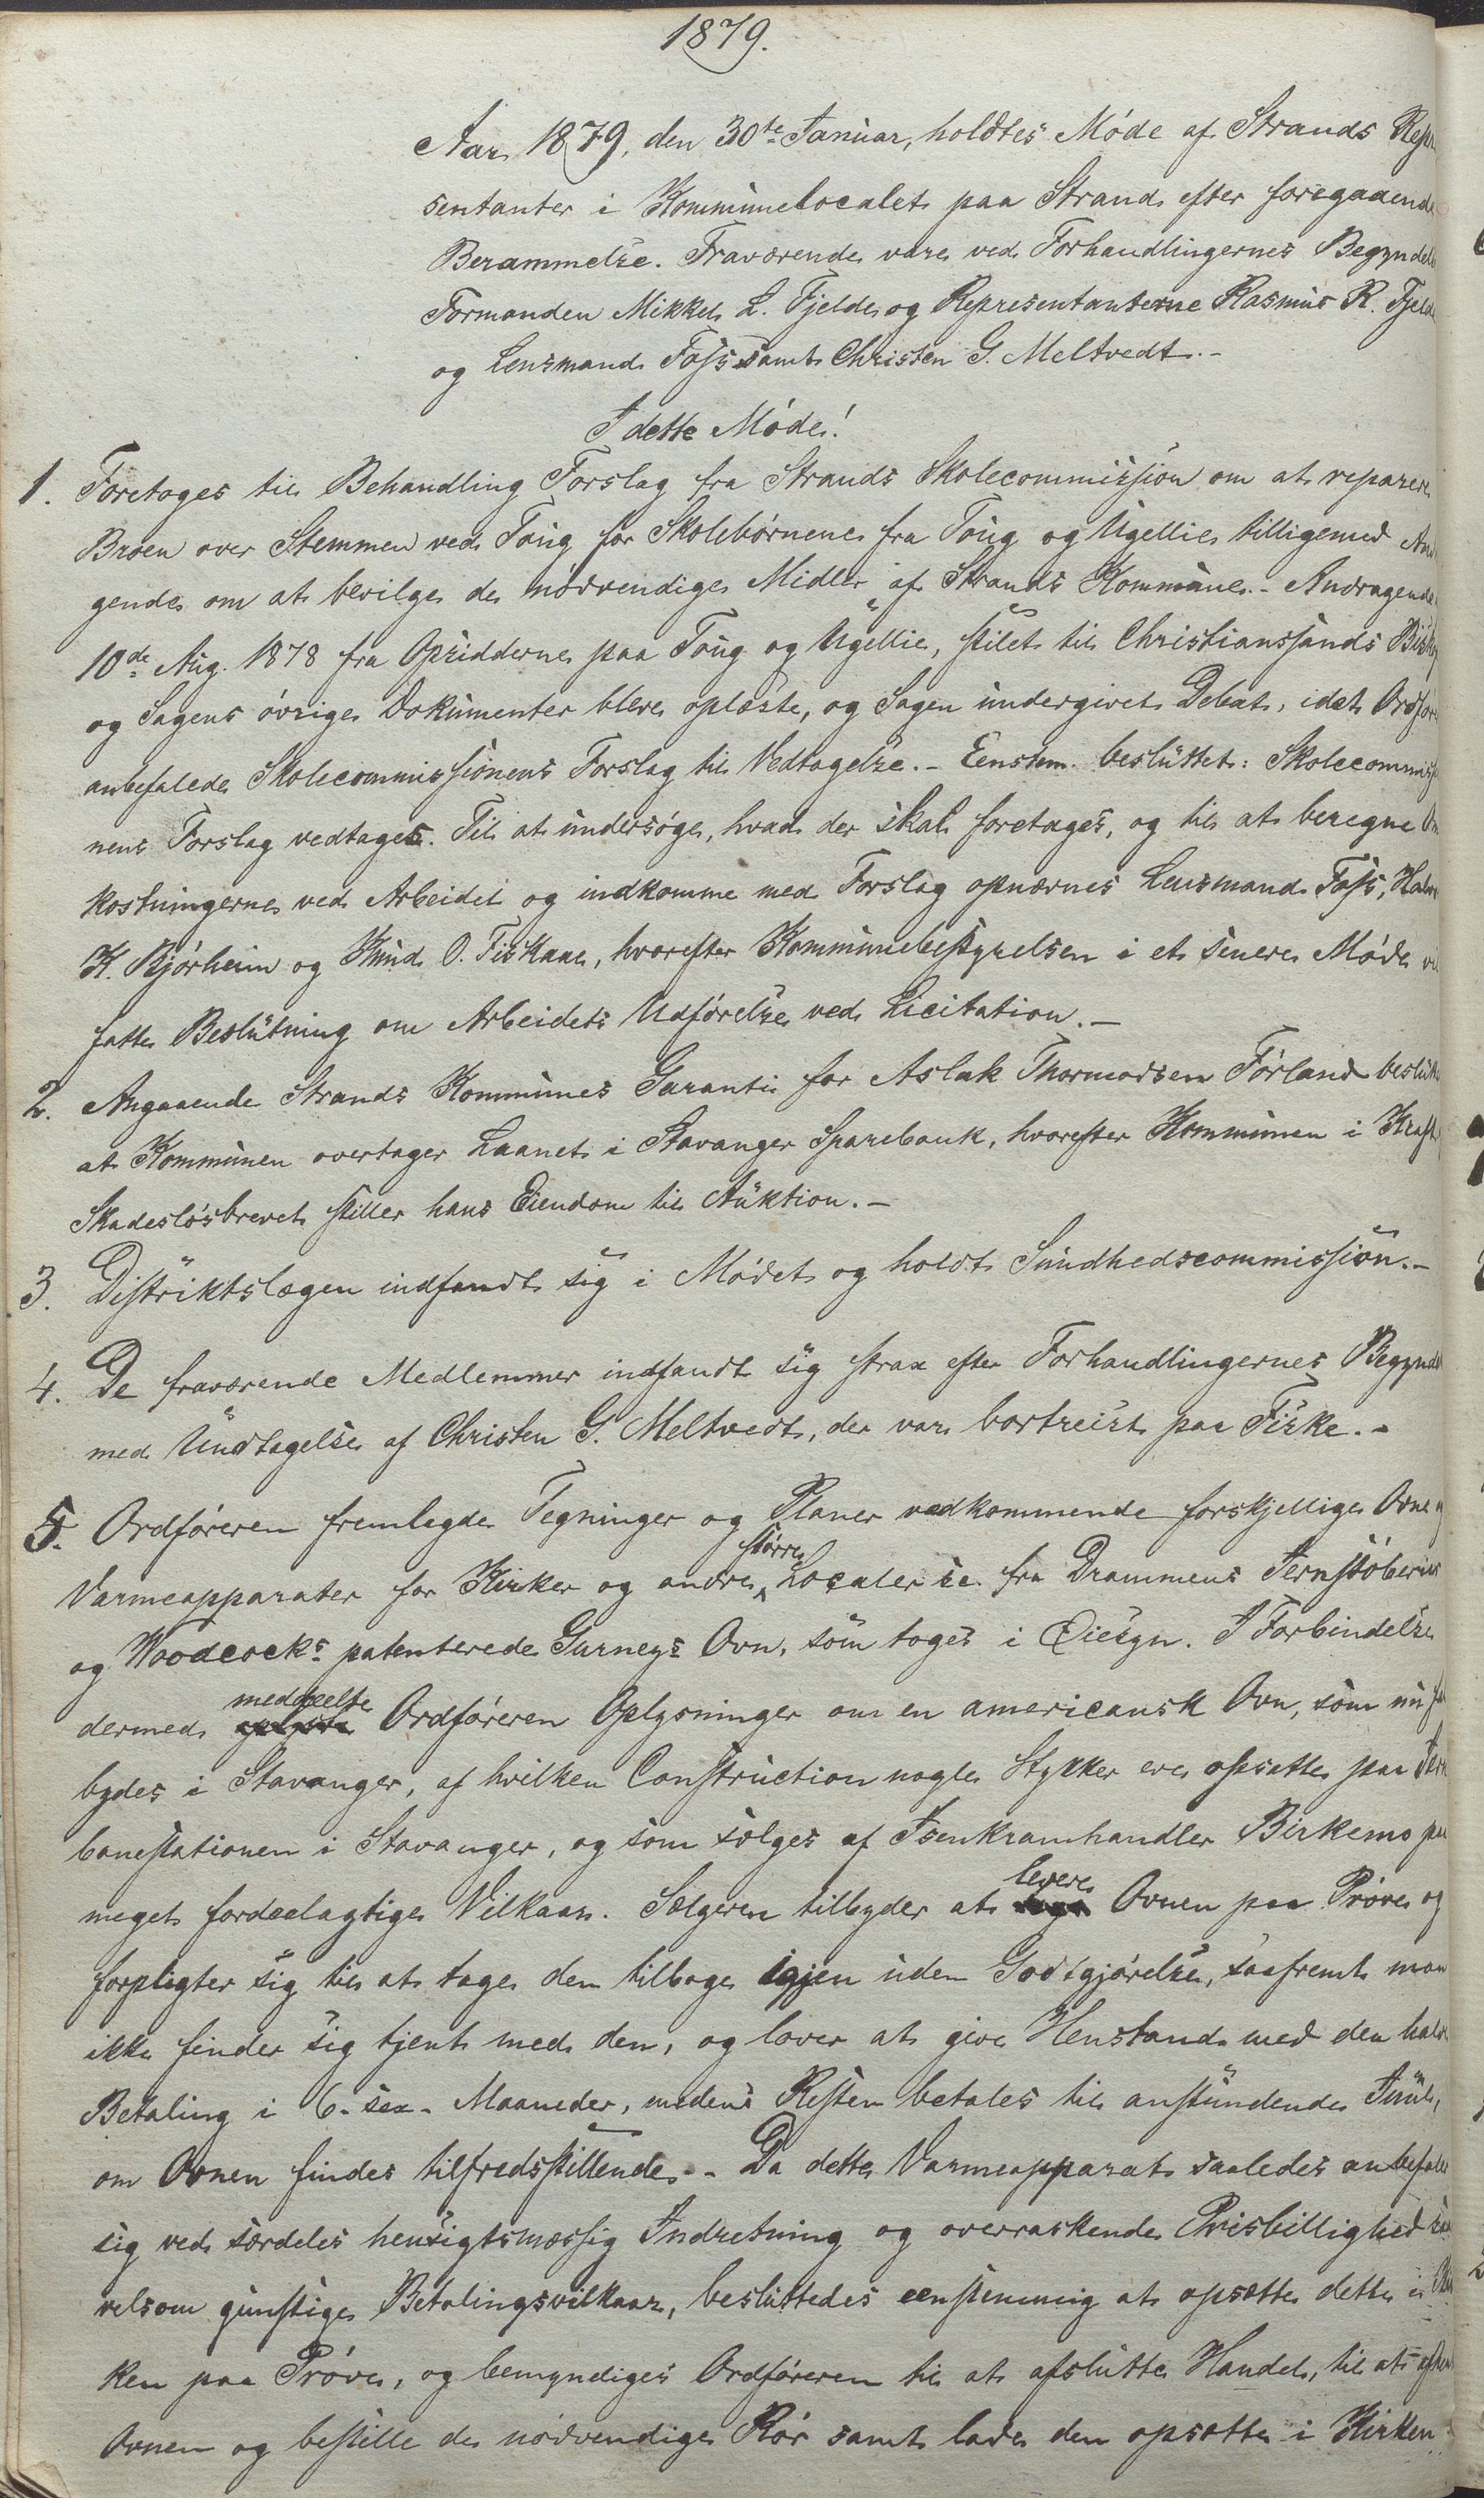 1879.
Aar 1879, den 30te Januar, holdtes Møde af Strands Repr
sentanter i Kommunelocalet paa Strand efter foregaaende
Berammelse. Fraværende vare ved Forhandlingernes Begyndel
Formanden Mikkel L. Fjelde og Representanterne Rasmus R. Fjeld
og Lensmand Foss samt Christen G. Meltvedt.-
I dette Møde!
1. Foretoges til Behandling Forslag fra Strands Skolecommission om at reparere
Broen over Stemmen ved Toug for Skolebørnene fra Toug og Ugellie tilligemed An
gende om at bevilge de nødvendige Midler af Strands Kommune.- Andragende
10de Aug. 1878 fra Opsidderne paa Toug og Ugellie, stilet til Christianssands Bisko
og Sagens øvrige Dokumenter bleve oplæste, og Sagen undergivet Debat, idet Ordfør
anbefalede Skolecommissionens Forslag til Vedtagelse.- Eenstem. besluttet: Skolecommissi
nens Forslag vedtages. Til at undersøge, hvad der skal foretages, og til at beregne Om
kostningerne ved Arbeidet og indkomme med Forslag opnævnes Lensmand Foss, Halv
K. Bjørheim og Knud O. Fiskaae, hvorefter Kommunebestyrelsen i et senere Møde vil
fatte Beslutning om Arbeidets Udførelse ved Licitation.-
2. Angaaende Strands Kommunes Garanti for Aslak Thormodsen Førland beslutt
at Kommunen overtager Laanet i Stavanger Sparebank, hvorefter Kommunen i Kraft
Skadesløsbrevet stiller hans Eiendom til Auktion.-
3. Distriktslægen indfandt sig i Mødet og holdt Sundhedscommission.-
4. De fraværende Medlemmer indfandt sig strax efter Forhandlingernes Begyndel
med Undtagelse af Christen G. Meltvedt, der var bortreist paa Fiske.-
5. Ordføreren fremlagde Tegninger og Planer vedkommende forskjellige Ovne og
større
Varmeapparater for Kirker og andre Localer se fra Drammens Jernstøberier
og Woodcocks patenterede Gurneys Ovn, som toges i Øiesyn. I Forbindelse
meddeelte
dermed Ordføreren Oplysninger om en americansk Ovn, som nu fal
bydes i Stavanger, af hvilken Construction nogle Stykker ere opsatte paa Jern
banestationen i Stavanger, og som sælges af Isenkramhandler Birkemo paa
levere
meget fordeelagtige Vilkaar. Sælgeren tilbyder at Ovnen paa Prøve og
forpligter sig til at tage den tilbage igjen uden Godtgjørelse, saafremt man
ikke finder sig tjent med den, og lover at give Henstand med den halv
Betaling i 6 - sex - Maaneder, medens Resten betales til anstundende Juul,
om Ovnen findes tilfredsstillende.- Da dette Varmeapparat saaledes anbefaler
sig ved særdeles hensigtsmæssig Indretning og overraskende Prisbillighed saa
velsom gunstige Betalingsvilkaar, besluttedes eenstemmig at opsætte dette i Kir
ken paa Prøve, og bemyndiges Ordføreren til at afslutte Handel, til at afhen
Ovnen og bestille de nødvendige Rør samt lade den opsætte i Kirken